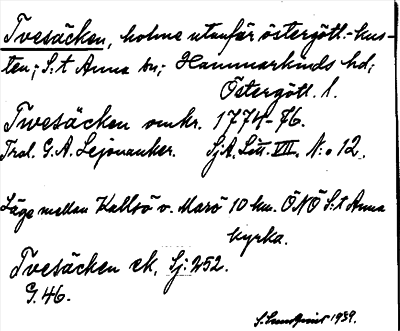 Tvesäcken, holme utanför östergötl.-kus-
ten; S:t Anna sn; Hammarkinds hd;
Östergötl. l.
Twesäcken omkr. 1774-76.
Trol. G. A. Lejonanker. SjA. Litt. VII. N:o 12.
Läge mellan Kallsö o. Marö 10 km. ÖNÖ S:t Anna
kyrka.
Tvesäcken ek. Sj: 252.
G. 46.
1939.